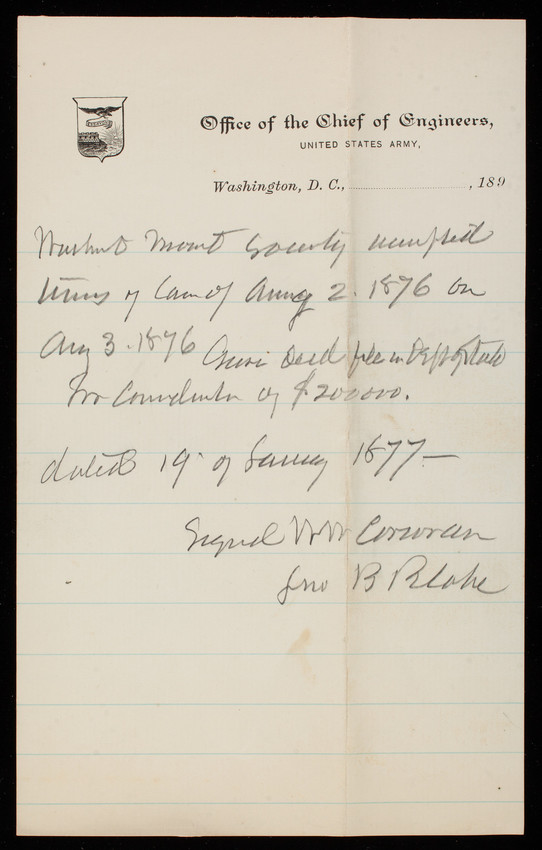 Office of the Chief of Engineers,
UNITED STATES ARMY,
Washington, D. C., , 189
Washnt Monmt Society accepted
terms of Law of Aug 2. 1876 on
Aug 3. 1876 Deed file in Dept of State
for Consideratn of $200000.
dated 19th of January 1877—
Signed W W Corcoran
Jno B Blake